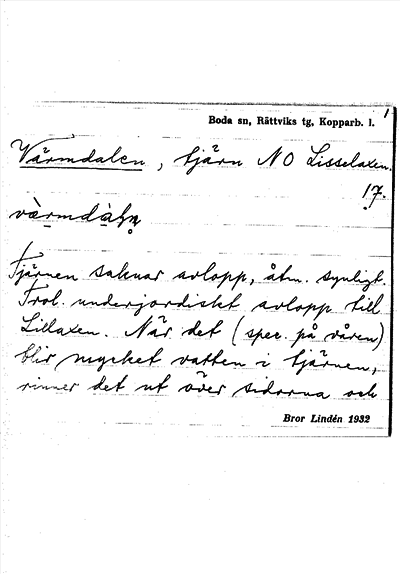 1
Boda sn, Rättviks tg, Kopparb. l.
Värmdalen, tjärn NO Lisselaxen.
17.
värmdàln
Tjärnen saknar avlopp, åtm. synligt.
Trol. underjordiskt avlopp till
Lillaxen. När det (spec. på våren)
blir mycket vatten i tjärnen,
rinner det ut över sidorna och
Bror Lindén 1932